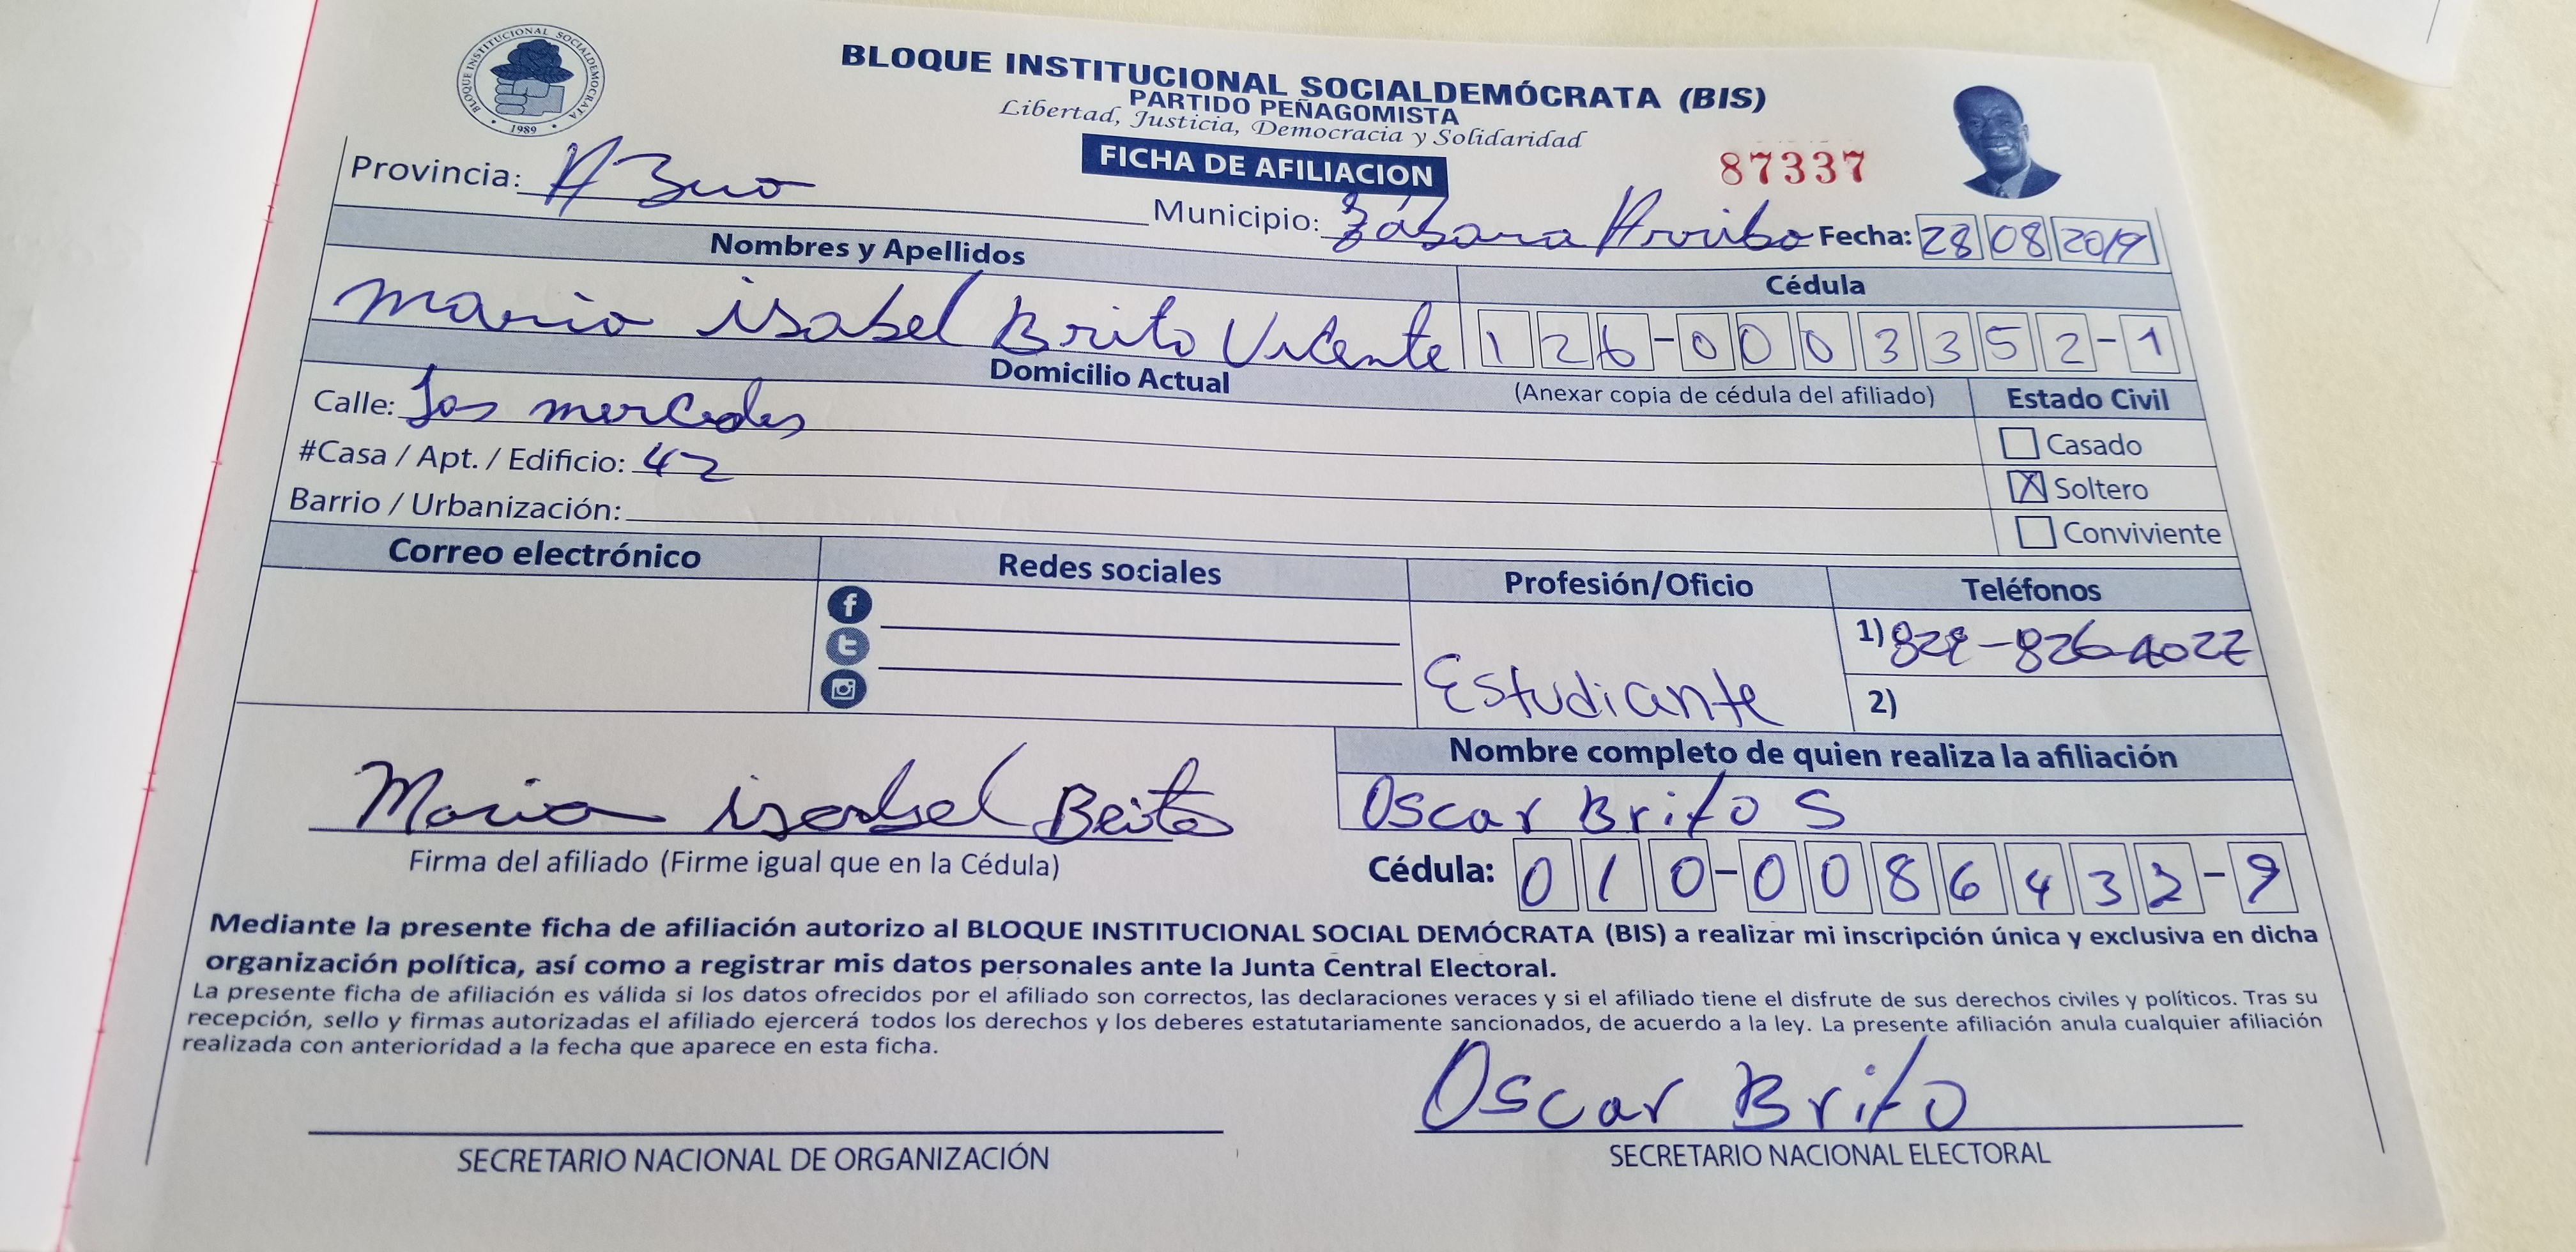 BLOQUE INSTITUCIONAL SOCIALDEMÓCRATA
1989
BLOQUE INSTITUCIONAL SOCIALDEMÓCRATA (BIS)
PARTIDO PEÑAGOMISTA
Libertad, Justicia, Democracia y Solidaridad
FICHA DE AFILIACION
87337
Provincia: Azua
Municipio: Sábana Arriba Fecha: 28 08 2019
Nombres y Apellidos
Cédula
Maria isabel Brito Vicente 126-0003352-1
Domicilio Actual
(Anexar copia de cédula del afiliado)
Estado Civil
Calle: Las mercedes
Casado
#Casa / Apt. / Edificio: 42
X Soltero
Barrio / Urbanización:
Conviviente
Correo electrónico
Redes sociales
Profesión/Oficio
Teléfonos
Estudiante
1) 829-826-4022
2)
Nombre completo de quien realiza la afiliación
Oscar Brito S
Maria isabel Brito
Firma del afiliado (Firme igual que en la Cédula)
Cédula: 010-0086432-9
Mediante la presente ficha de afiliación autorizo al BLOQUE INSTITUCIONAL SOCIAL DEMÓCRATA (BIS) a realizar mi inscripción única y exclusiva en dicha
organización política, así como a registrar mis datos personales ante la Junta Central Electoral.
La presente ficha de afiliación es válida si los datos ofrecidos por el afiliado son correctos, las declaraciones veraces y si el afiliado tiene el disfrute de sus derechos civiles y políticos. Tras su
recepción, sello y firmas autorizadas el afiliado ejercerá todos los derechos y los deberes estatutariamente sancionados, de acuerdo a la ley. La presente afiliación anula cualquier afiliación
realizada con anterioridad a la fecha que aparece en esta ficha.
Oscar Brito
SECRETARIO NACIONAL DE ORGANIZACIÓN
SECRETARIO NACIONAL ELECTORAL